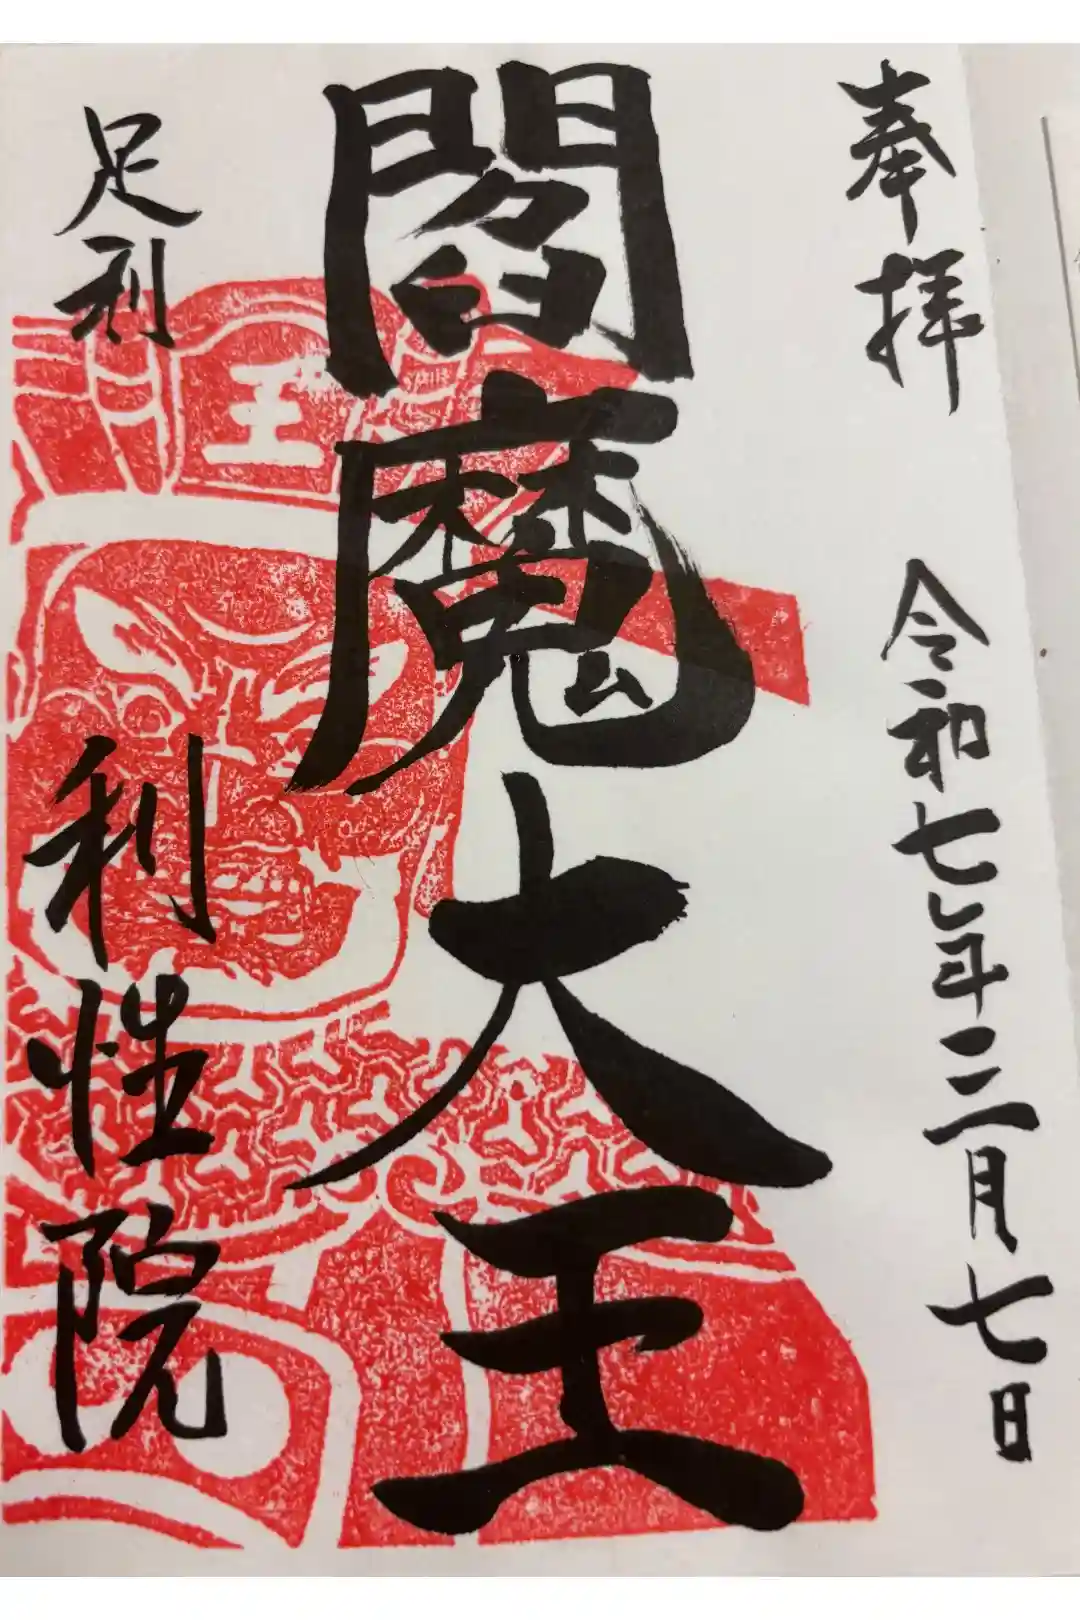 奉拝
令和七年二月七日
閻魔大王
王
足利
利性院